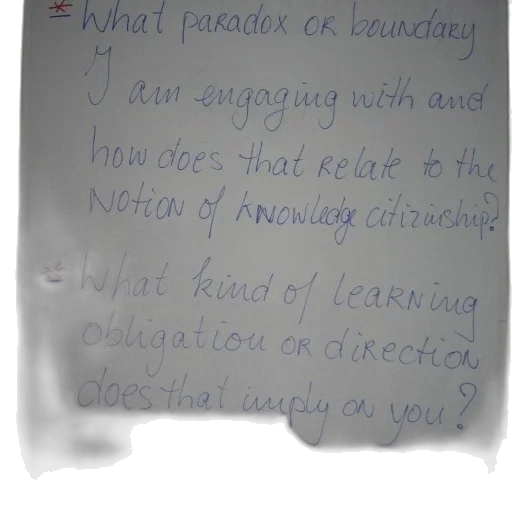 * What paradox or boundary
I am engaging with and
how does that relate to the
notion of knowledge citizinship?
* What kind of learning
obligation or direction
does that imply on you?